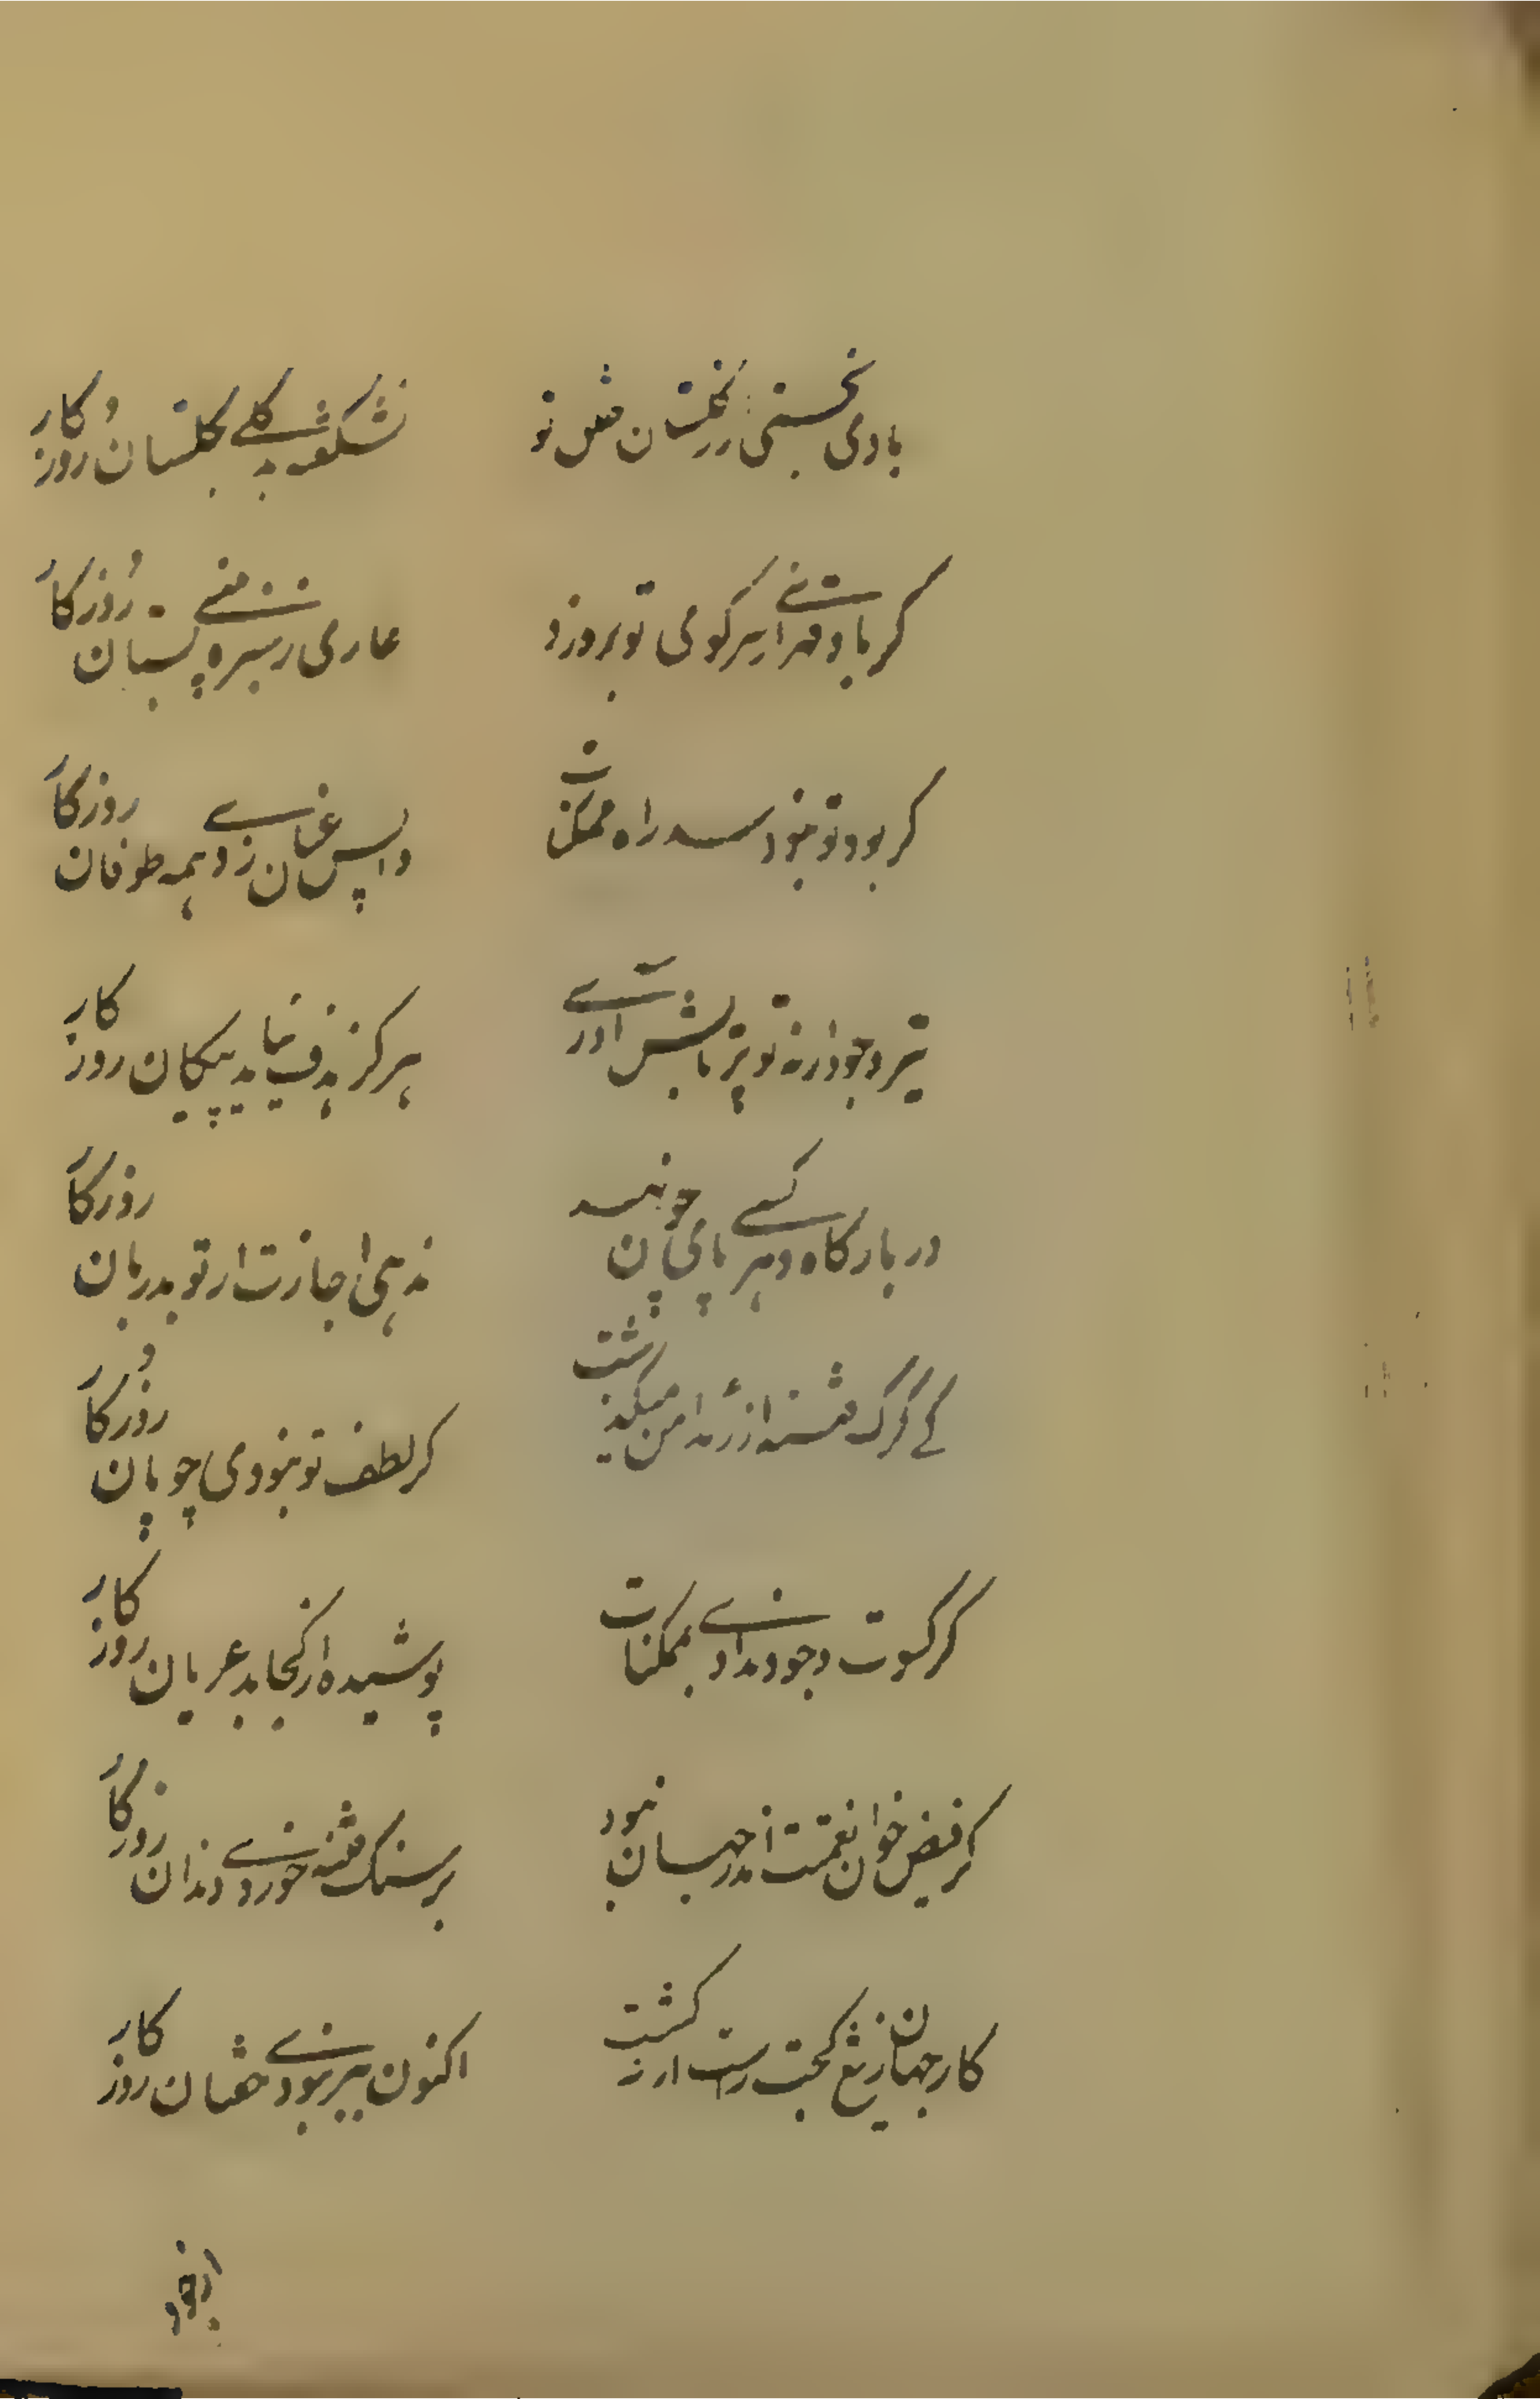 بادی نجستی ار رکلستان فیض تو نشکفته بد کلی بکلستان روزکار
کر باد قهرت از سر کوی تو بر وزد عاری ز سبزه بستان روزکار
کر بود تو نبود سد راه ممکنات واپس عنان زدی همه طوفان روزکار
تیر وجود ار نه تو پرتابش آوری هرکز هدف نیابد پیکان روزکار
در بارکاه دهر کسی پای چون نهد ندهی اجازت ار تو بدربان روزکار
کی کرک فتنه از رمه امن میکذشت کر لطف تو نبودی چوپان روزکار
کر کسوت وجود ندادی بممکنات پوشیده از کجا بد عریان روزکار
کر فیض خوان نعمتت اندر جهان نبود بر سنک فتنه خوردی دندان روزکار
کار جهان ز تیغ کجت راست ار نکشت اکنون نبودی روزکار